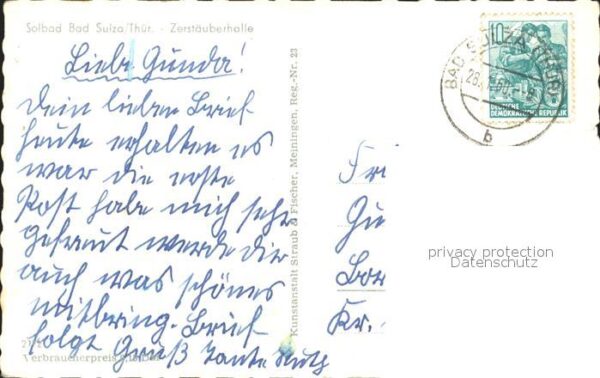 Solbad Bad Sulza/Thür. - Zerstäuberhalle
Liebe Gunda!
Dein lieben Brief
heute erhalten es
war die erste
Post habe mich sehr
gefreut werde dir
auch was schönes
mitbring. Brief
folgt Gruß Tante Ruth
Verbraucherpreis
Kunstanstalt Straub & Fischer, Meiningen, Reg.-Nr. 23
BAD SULZA
b
10
DEUTSCHE
DEMOKRATISCHE REPUBLIK
Fr
Gu
Bor
Kr.
privacy protection
Datenschutz